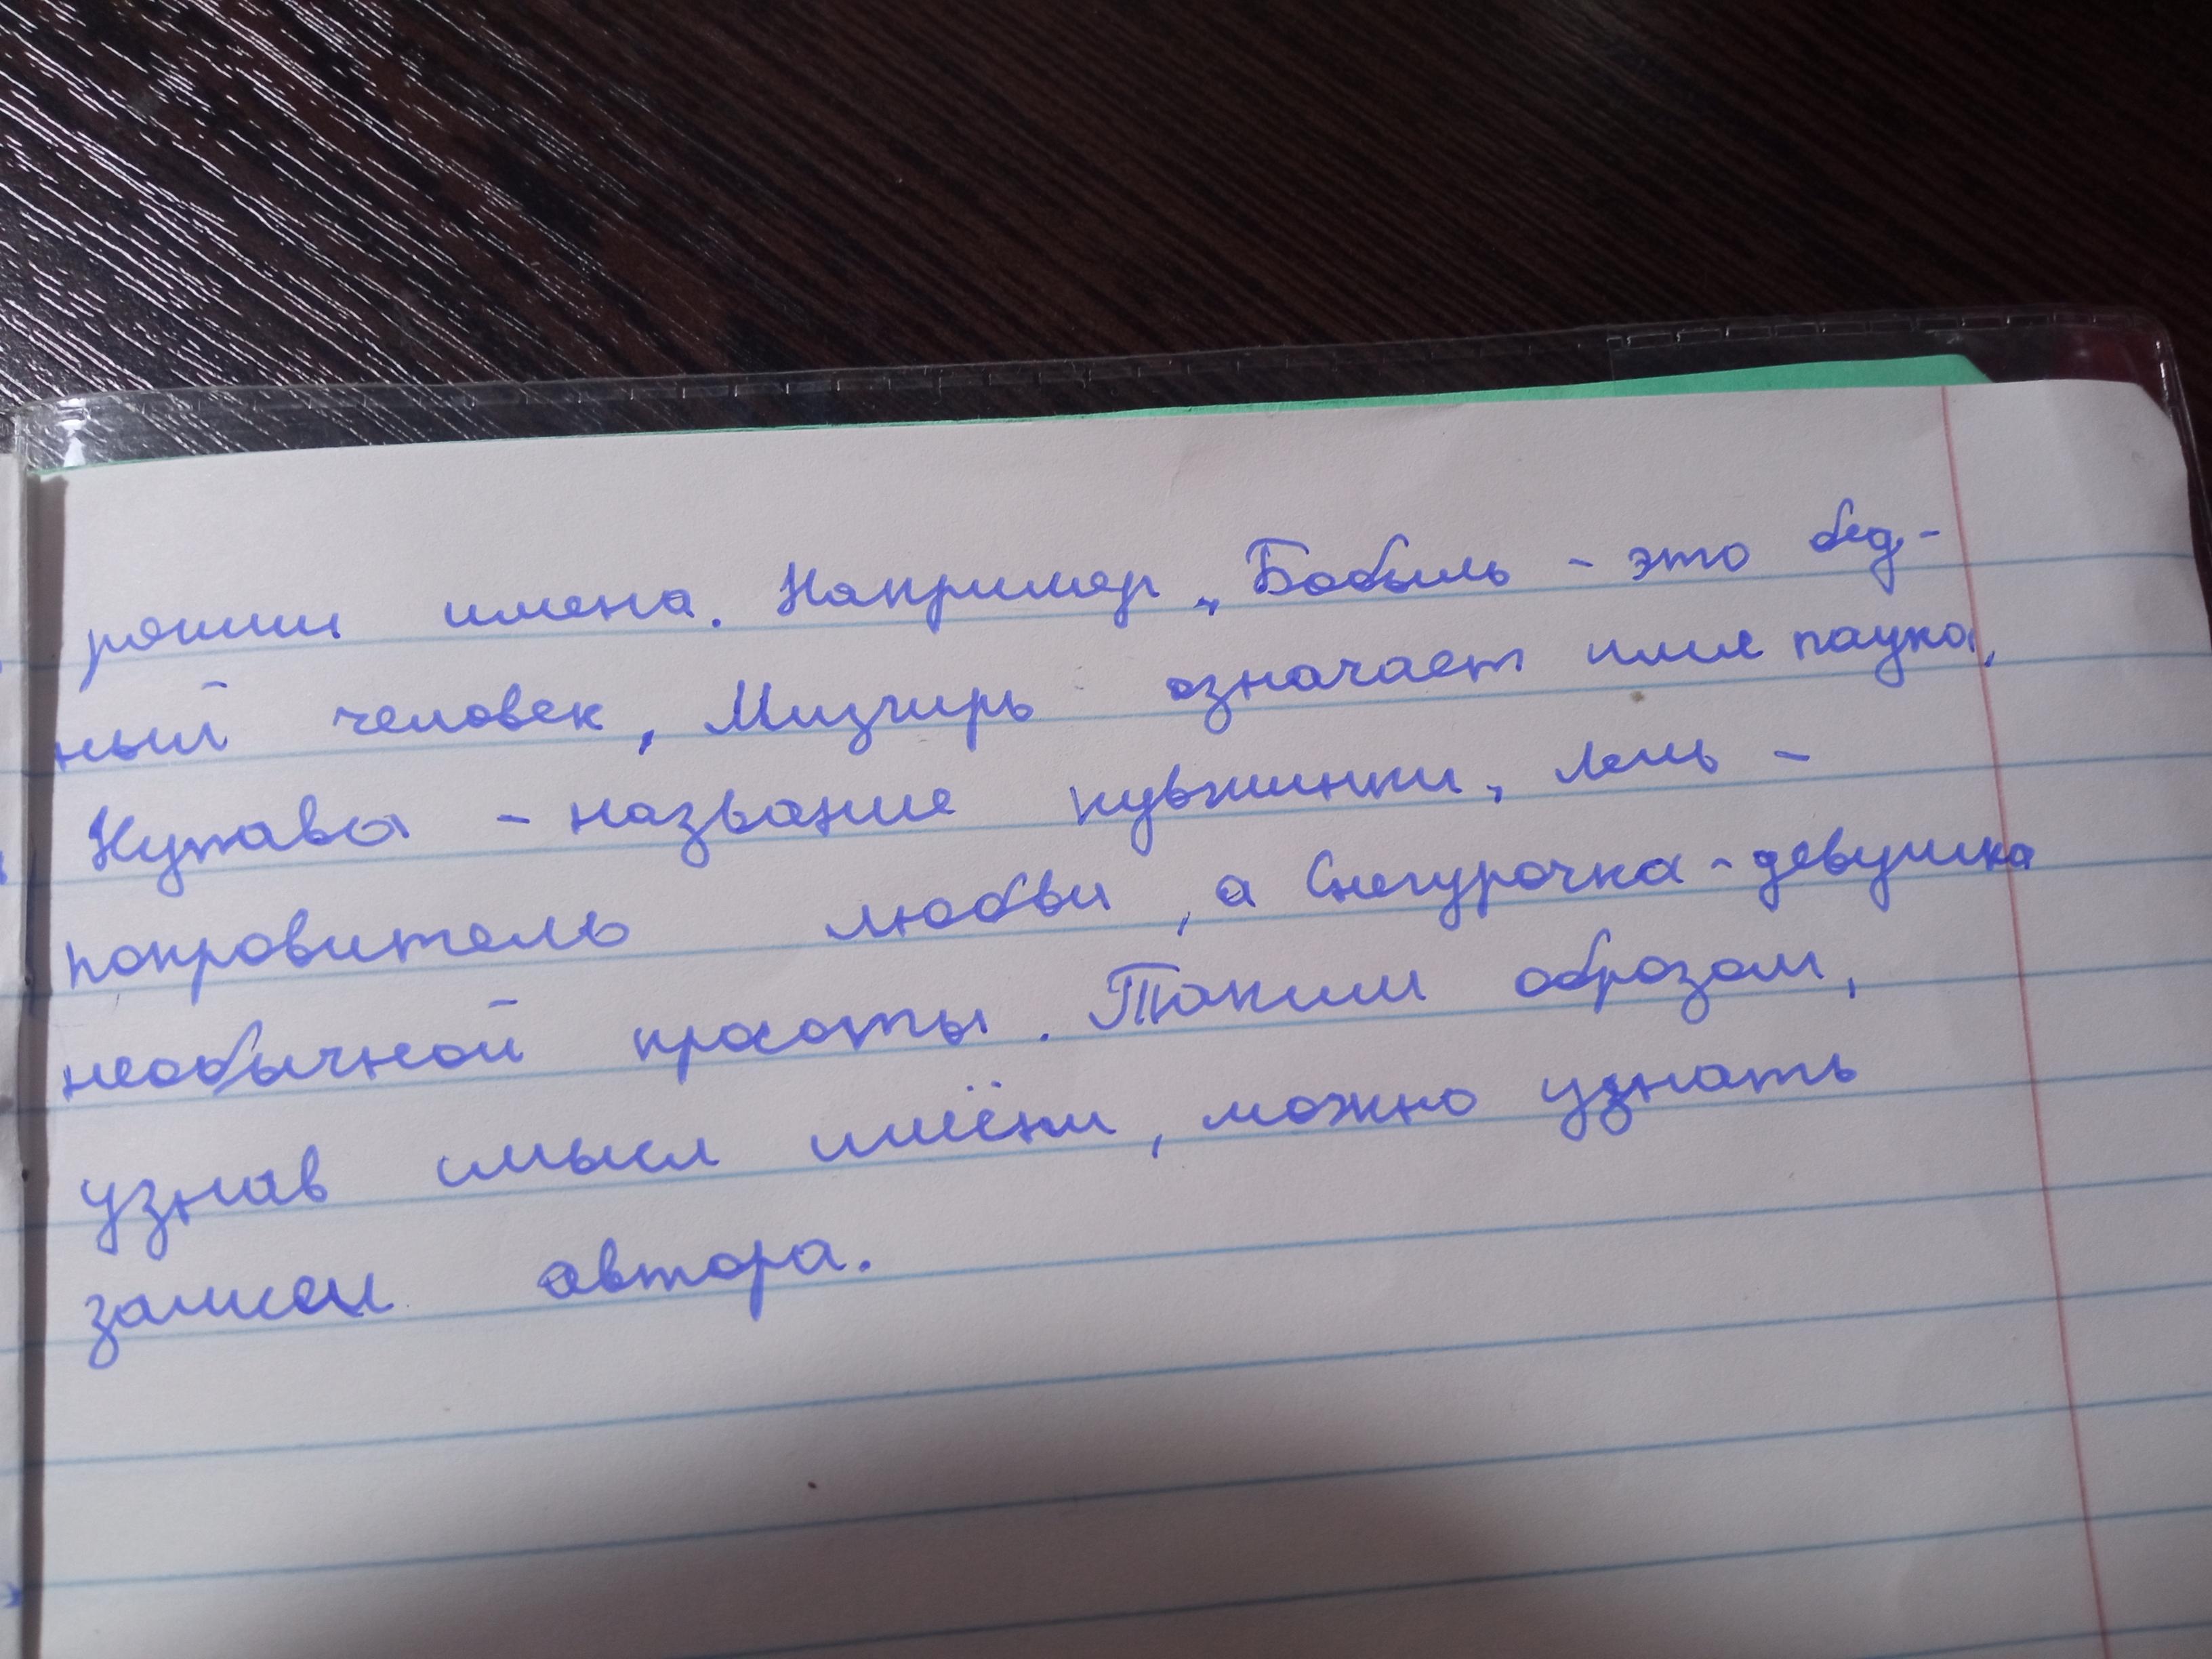 рошии имена. Например, Бобыль - это бед-
ный человек, Мизгирь означает имя паука,
Купава - название кувшинки, Лель -
покровитель любви, а Снегурочка - девушка
необычной красоты. Таким образом,
узнав смысл имёни, можно узнать
замысел автора.